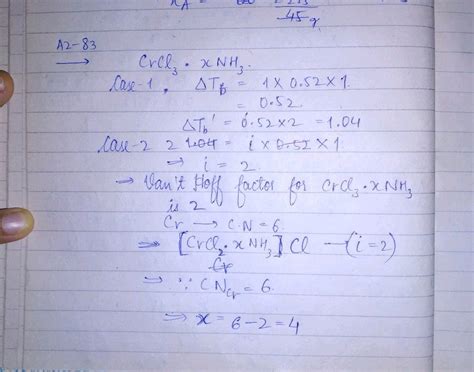 x_A =
45 g
A2-83
→ CrCl₃·xNH₃.
Case-1, ΔT_b = 1 × 0.52 × 1
= 0.52
ΔT_b' = 0.52 × 2 = 1.04
Case-2 2 1.04 = i × 0.52 × 1
⇒ i = 2
→ Van't Hoff factor for CrCl₃·xNH₃
is 2
Cr → C.N = 6
⇒ [CrCl₂·xNH₃]Cl — (i=2)
Cr
⇒ ∵ CN_Cr = 6
⇒ x = 6-2 = 4